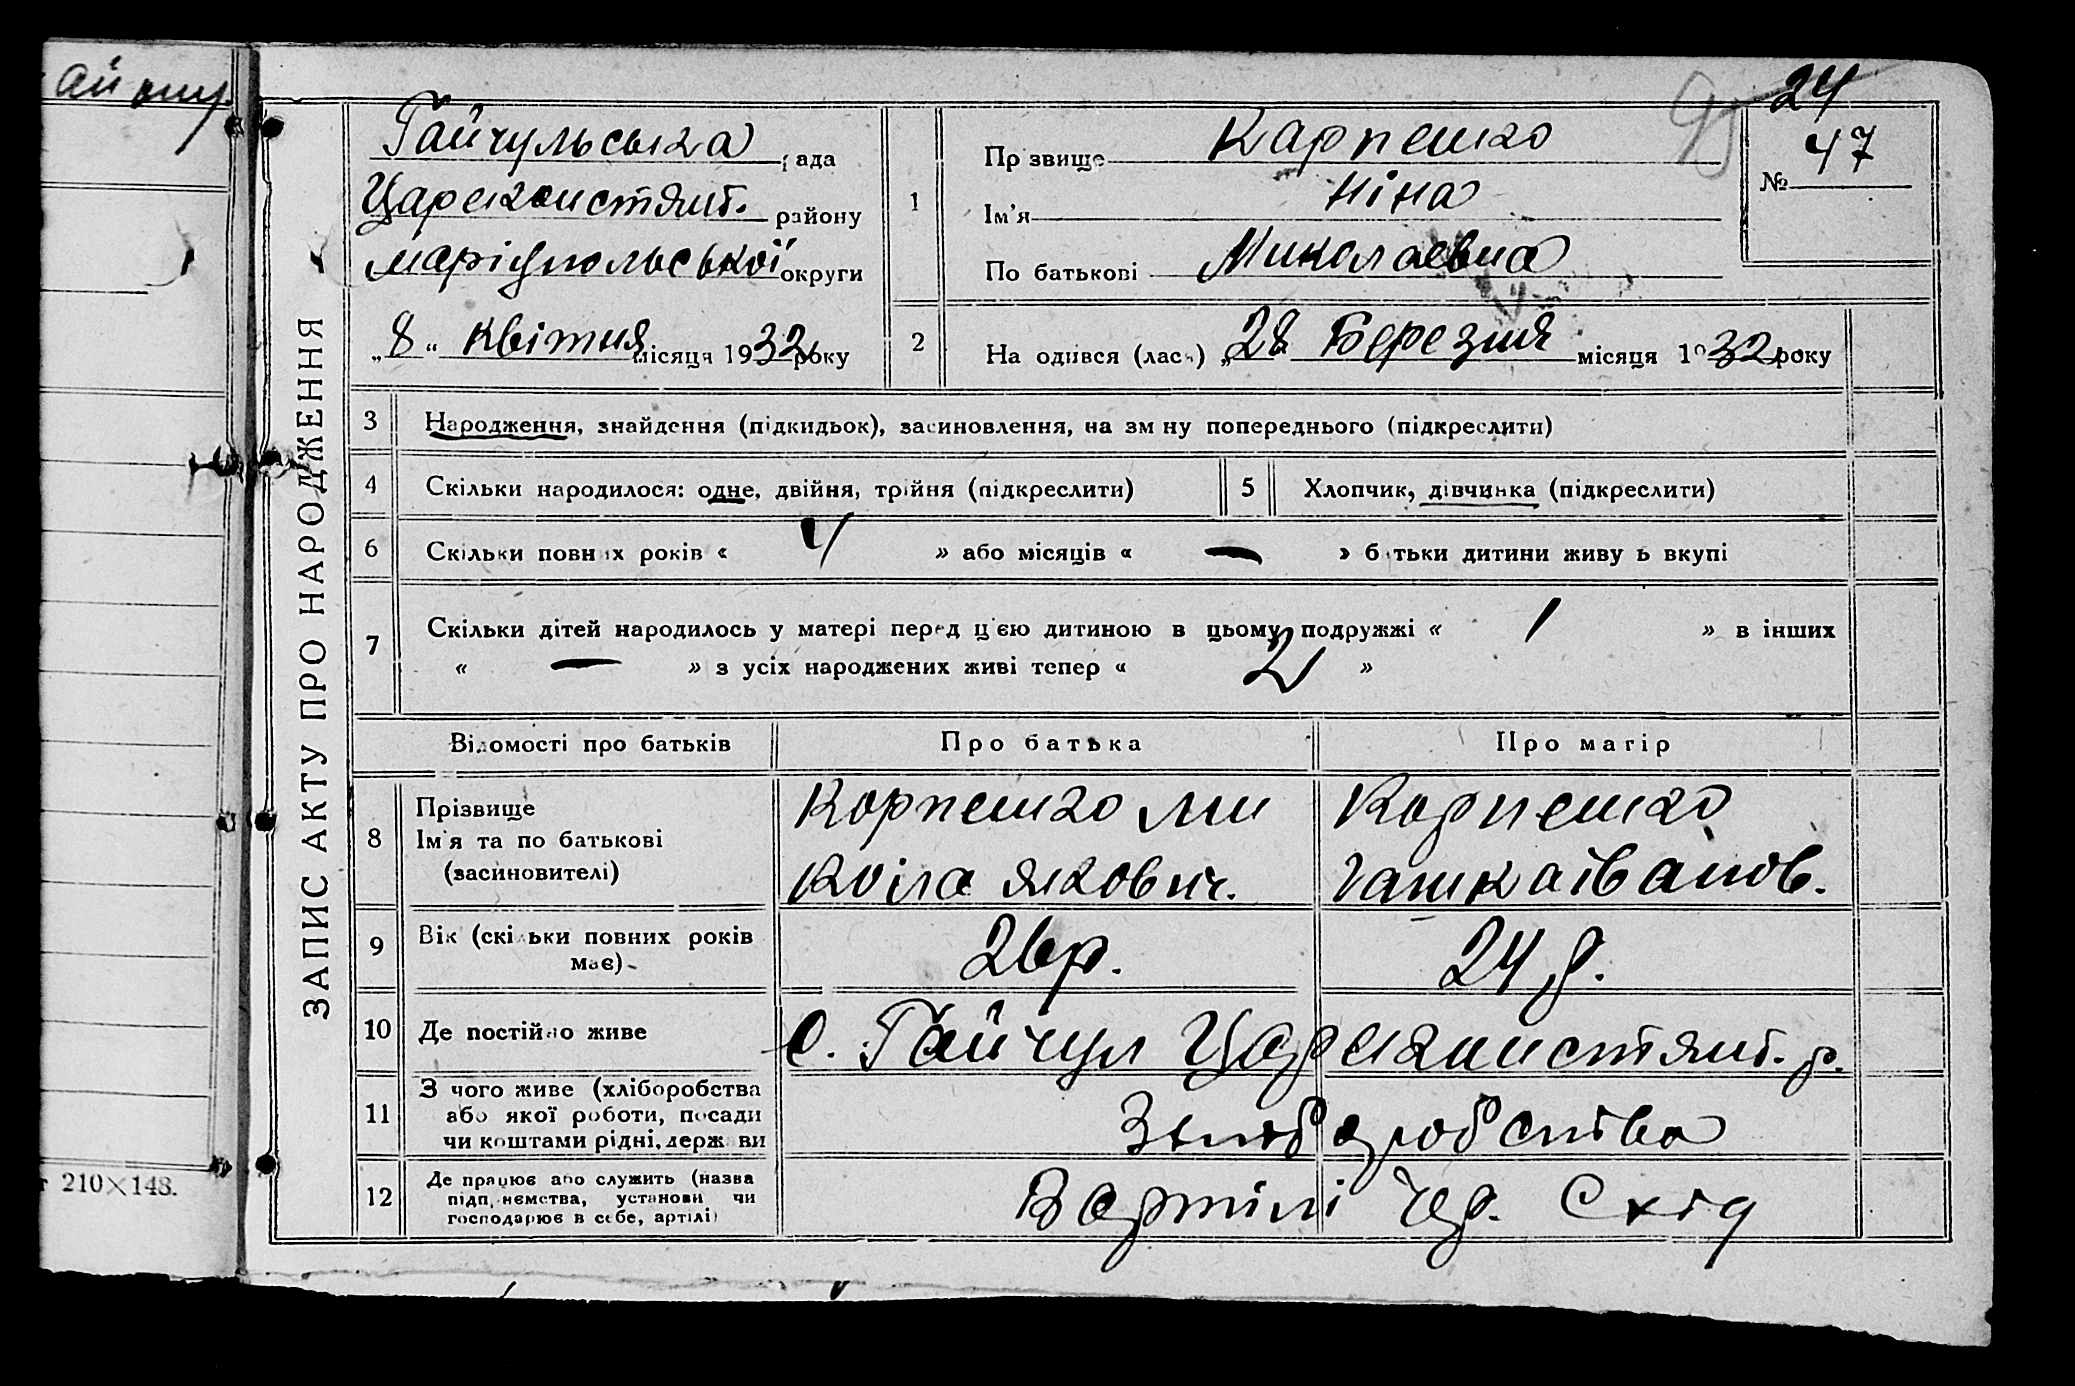 24
95
Гайчульська рада
Царекостянт. району
маріупольської округи
„8“ квітня місяця 1932 року
1
Прізвище Карпенко
Ім'я Ніна
По батькові Миколаевна
№ 47
2
На одився (лась) „28 Березня місяця 1932 року
ЗАПИС АКТУ ПРО НАРОДЖЕННЯ
3 Народження, знайдення (підкидьок), засиновлення, на зм ну попереднього (підкреслити)
4 Скільки народилося: одне, двійня, трійня (підкреслити)
5 Хлопчик, дівчинка (підкреслити)
6 Скільки повних років « 4 » або місяців « — » батьки дитини живу ь вкупі
7 Скільки дітей народилось у матері перед цією дитиною в цьому подружжі « 1 » в інших
« — » з усіх народжених живі тепер « 2 »
Відомості про батьків
Про батька
Про матір
8 Прізвище
Ім'я та по батькові
(засиновителі)
Корпенко Ми
кола Якович.
Корпенко
Ганна Іванов.
9 Вік (скільки повних років
має)
26р.
24 р.
10 Де постійно живе
с. Гайчул Царекокнстянт. р.
11 З чого живе (хліборобства
або якої роботи, посади
чи коштами рідні, держави
З хліборобства
12 Де працює або служить (назва
підприємства, установи чи
господарює в себе, артілі)
В артілі Чер. Схід
210×148.